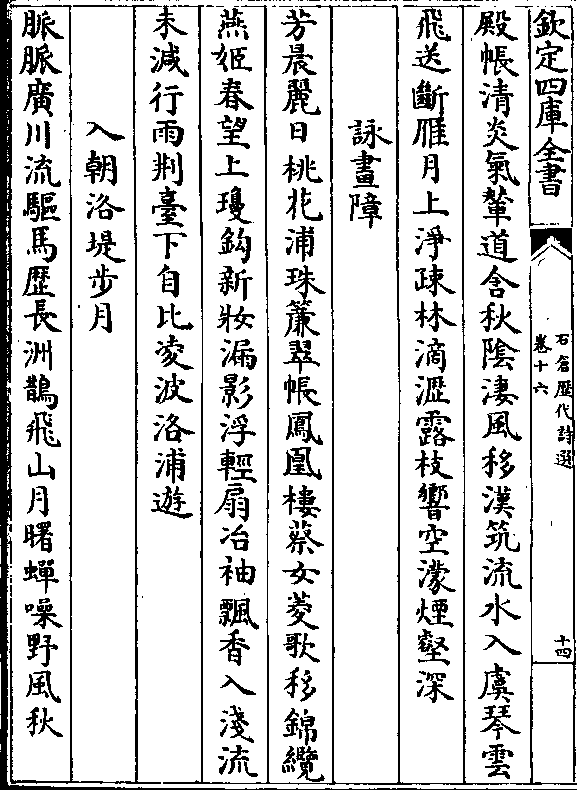 欽定四庫全書
石倉歷代詩選
卷十六
十四
殿帳清炎氣輦道含秋陰淒風移漢筑流水入虞琴雲
飛送斷雁月上淨疎林滴瀝露枝響空濛煙壑深
詠畫障
芳晨麗日桃花浦珠簾翠帳鳳凰樓蔡女菱歌移錦纜
燕姬春望上瓊鈎新妝漏影浮輕扇冶袖飄香入淺流
未減行雨荆臺下自比凌波洛浦遊
入朝洛堤步月
脈脈廣川流驅馬歷長洲鵲飛山月曙蟬噪野風秋